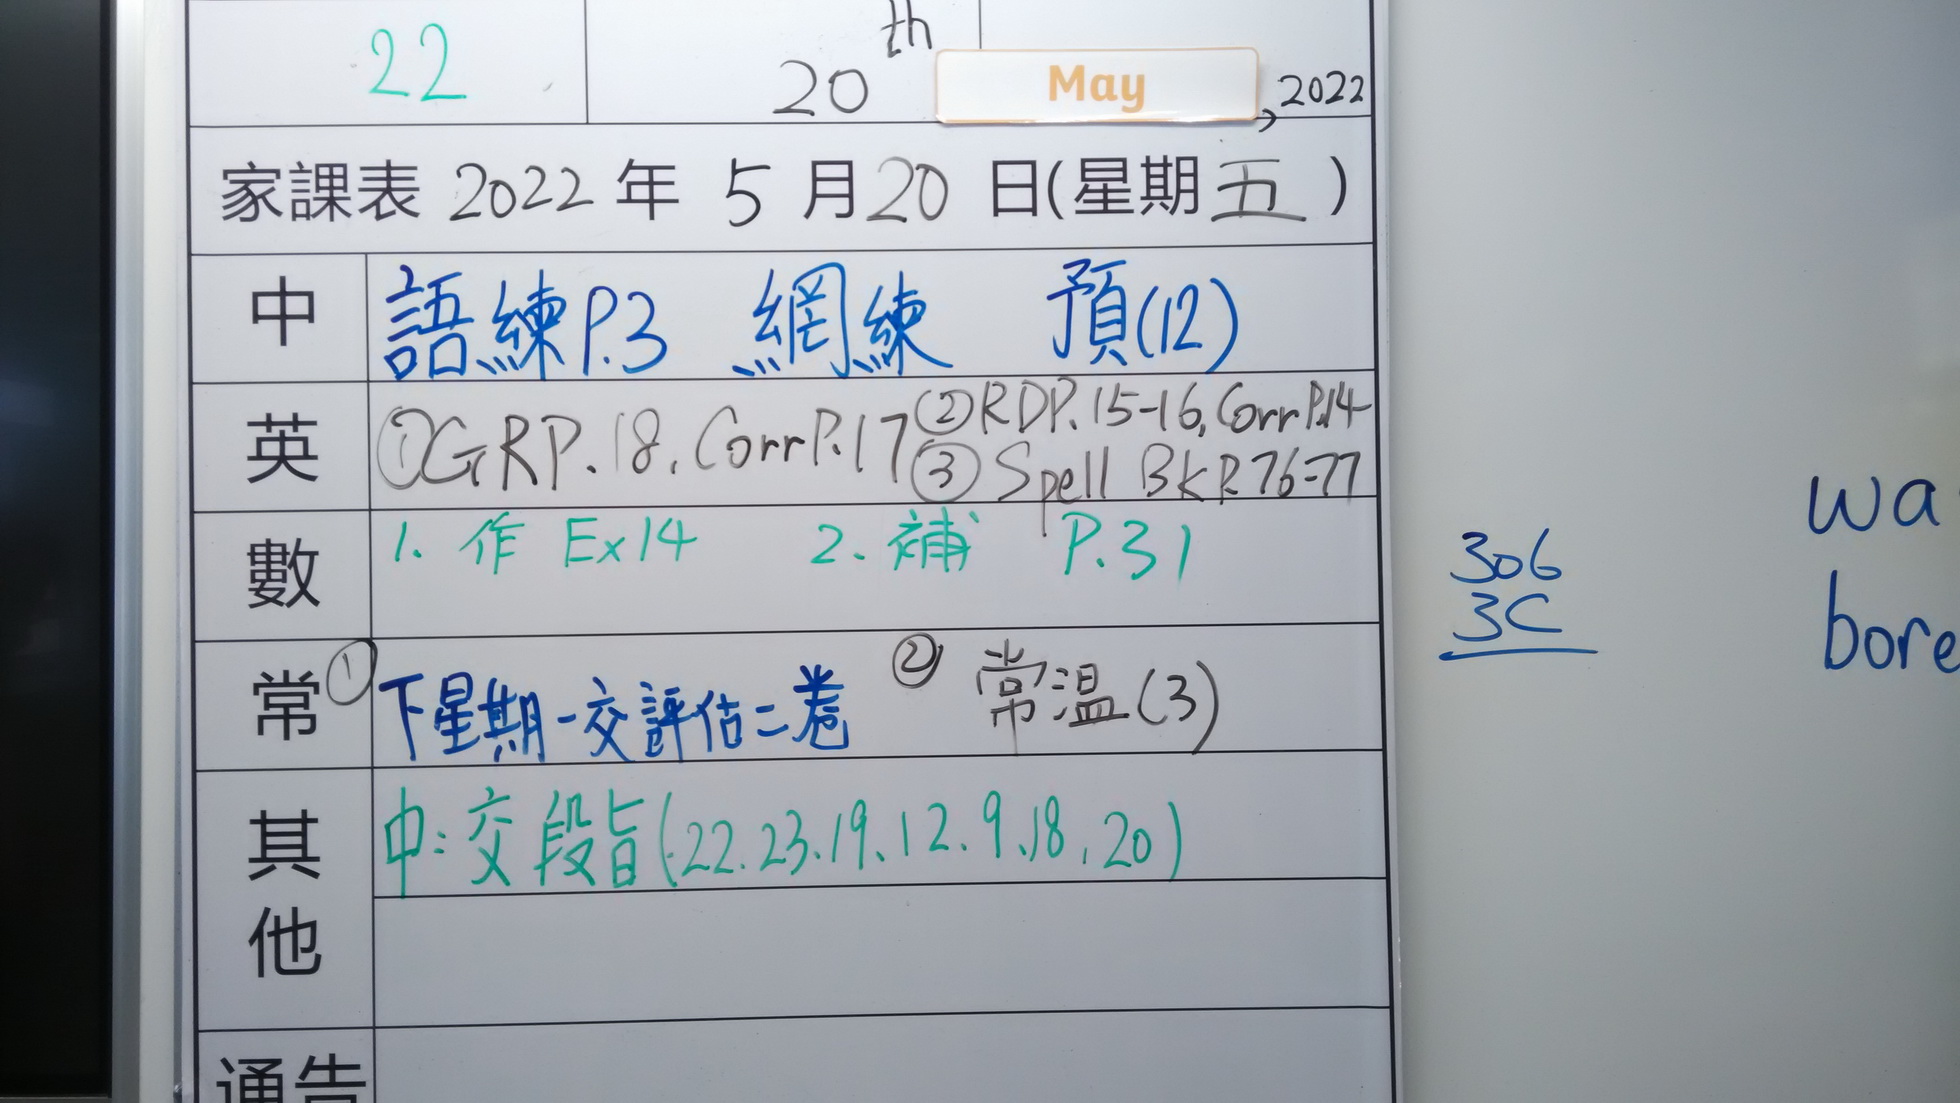 22
20th May, 2022
家課表 2022 年 5 月 20 日(星期五)
中 語練P.3 網練 預(12)
英 ①GRP.18, Corr P.17 ②RDP.15-16, Corr P.14
③ Spell BK P.76-77
數 1. 作 Ex14 2. 補 P.31
常 ① 下星期一交評估二卷 ② 常溫(3)
其他 中:交段旨(22.23.19.12.9.18.20)
通告
306
3C
wa
bore